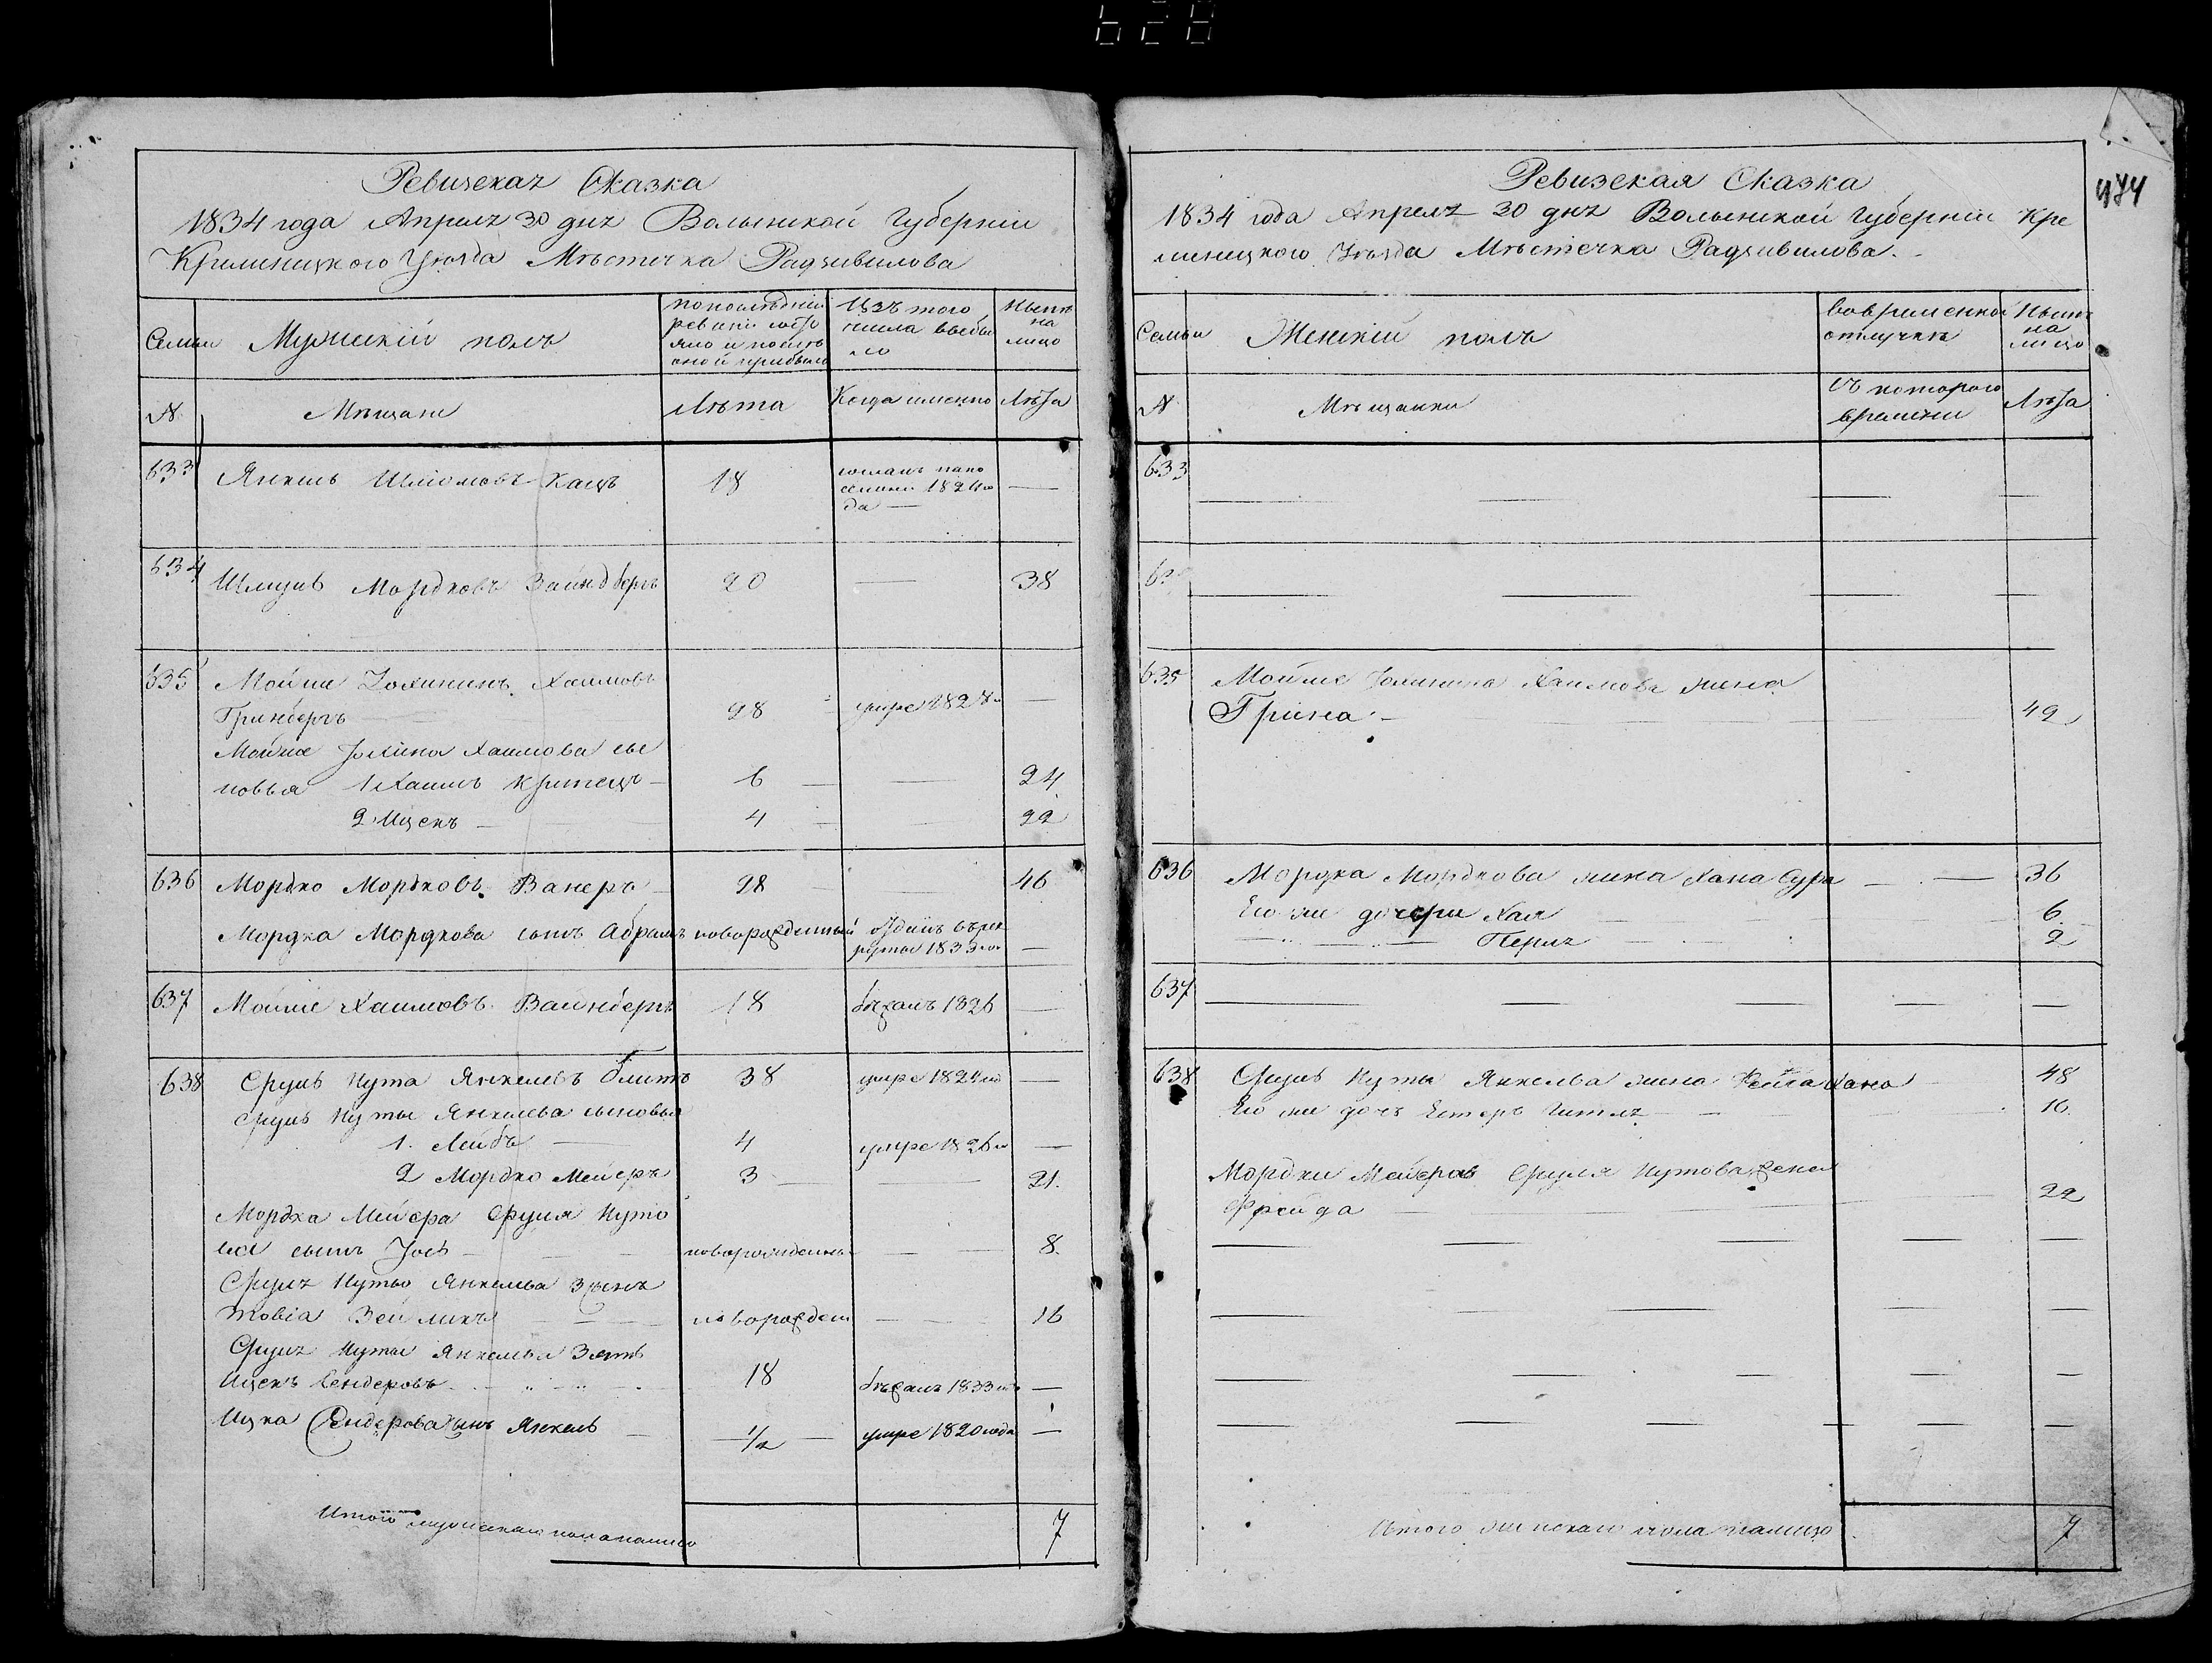 628
Ревизская Сказка
1834 года Апреля 30 дня Волынской Губерніи
Кременицкого Уѣзда Мѣстечка Радзивилова
Семьи
Мужескій полъ
по послѣдней
ревизіи состо
яло и послѣ
оной прибыло
Изъ того
числа выбы
ло
Нынѣ
на
лицо
№
Мѣщане
Лѣта
Когда именно
Лѣта
633
Янкель Шліомовъ Кацъ
18
сосланъ на по
селеніе 1824 го
да —
—
634
Шмуль Мордковъ Вайнбергъ
20
—
38
635
Мойше Іохининъ Хаимовъ
Гринбергъ
28
умре 182
—
Мойше Іохина Хаимова сы
новья 1 Хаимъ
6
—
24
2 Ицекъ —
4
22
636
Мордко Мордковъ Ванеръ
28
46
Мордка Мордкова сынъ Абрамъ
новорожденный
Отданъ въ рек
руты 1833 го
—
637
Мойше Хаимовъ Вайнбергъ
18
бѣжалъ 1826
—
638
Сруль Нута Янкелевъ
38
умре 1824 го
—
Сруль Нуты Янкелева сыновья
1. Лейбъ —
4
умре 1826 го
—
2 Мордко Мейеръ
3
—
21.
Мордка Мейера Сруля Нуто
ва сынъ Іосъ —
новорожденный
—
8.
Сруля Нуты Янкелева 3 сынъ
Товіа Зейликъ
новорожден
—
16
Сруля Нуты Янкелева Зять
Ицекъ Сендеровъ
18
бѣжалъ 1833 го
—
Ицка Сендерова сынъ Янкель
1/2
умре 1820 года
—
Итого мужескаго пола налицо
7
474
Ревизская Сказка
1834 года Апреля 30 дня Волынской Губерніи Кре
меницкого Уѣзда Мѣстечка Радзивилова.
Семьи
Женскій полъ
во временной
отлучкѣ
Нынѣ
на
лицо
№
Мѣщанки
съ которого
времени
Лѣта
633
635
Мойше Іохинина Хаимова жена
Грина —
49
636
Мордка Мордкова жена Хана Сура
36
Его же дочери Хая
6.
Перля
2
637
638
Сруль Нуты Янкелева жена Хана
48
Его же дочь Естеръ Гитля
16.
Мордки Мейера Сруля Нутова жена
Фрейда
22
Итого женскаго пола налицо
7